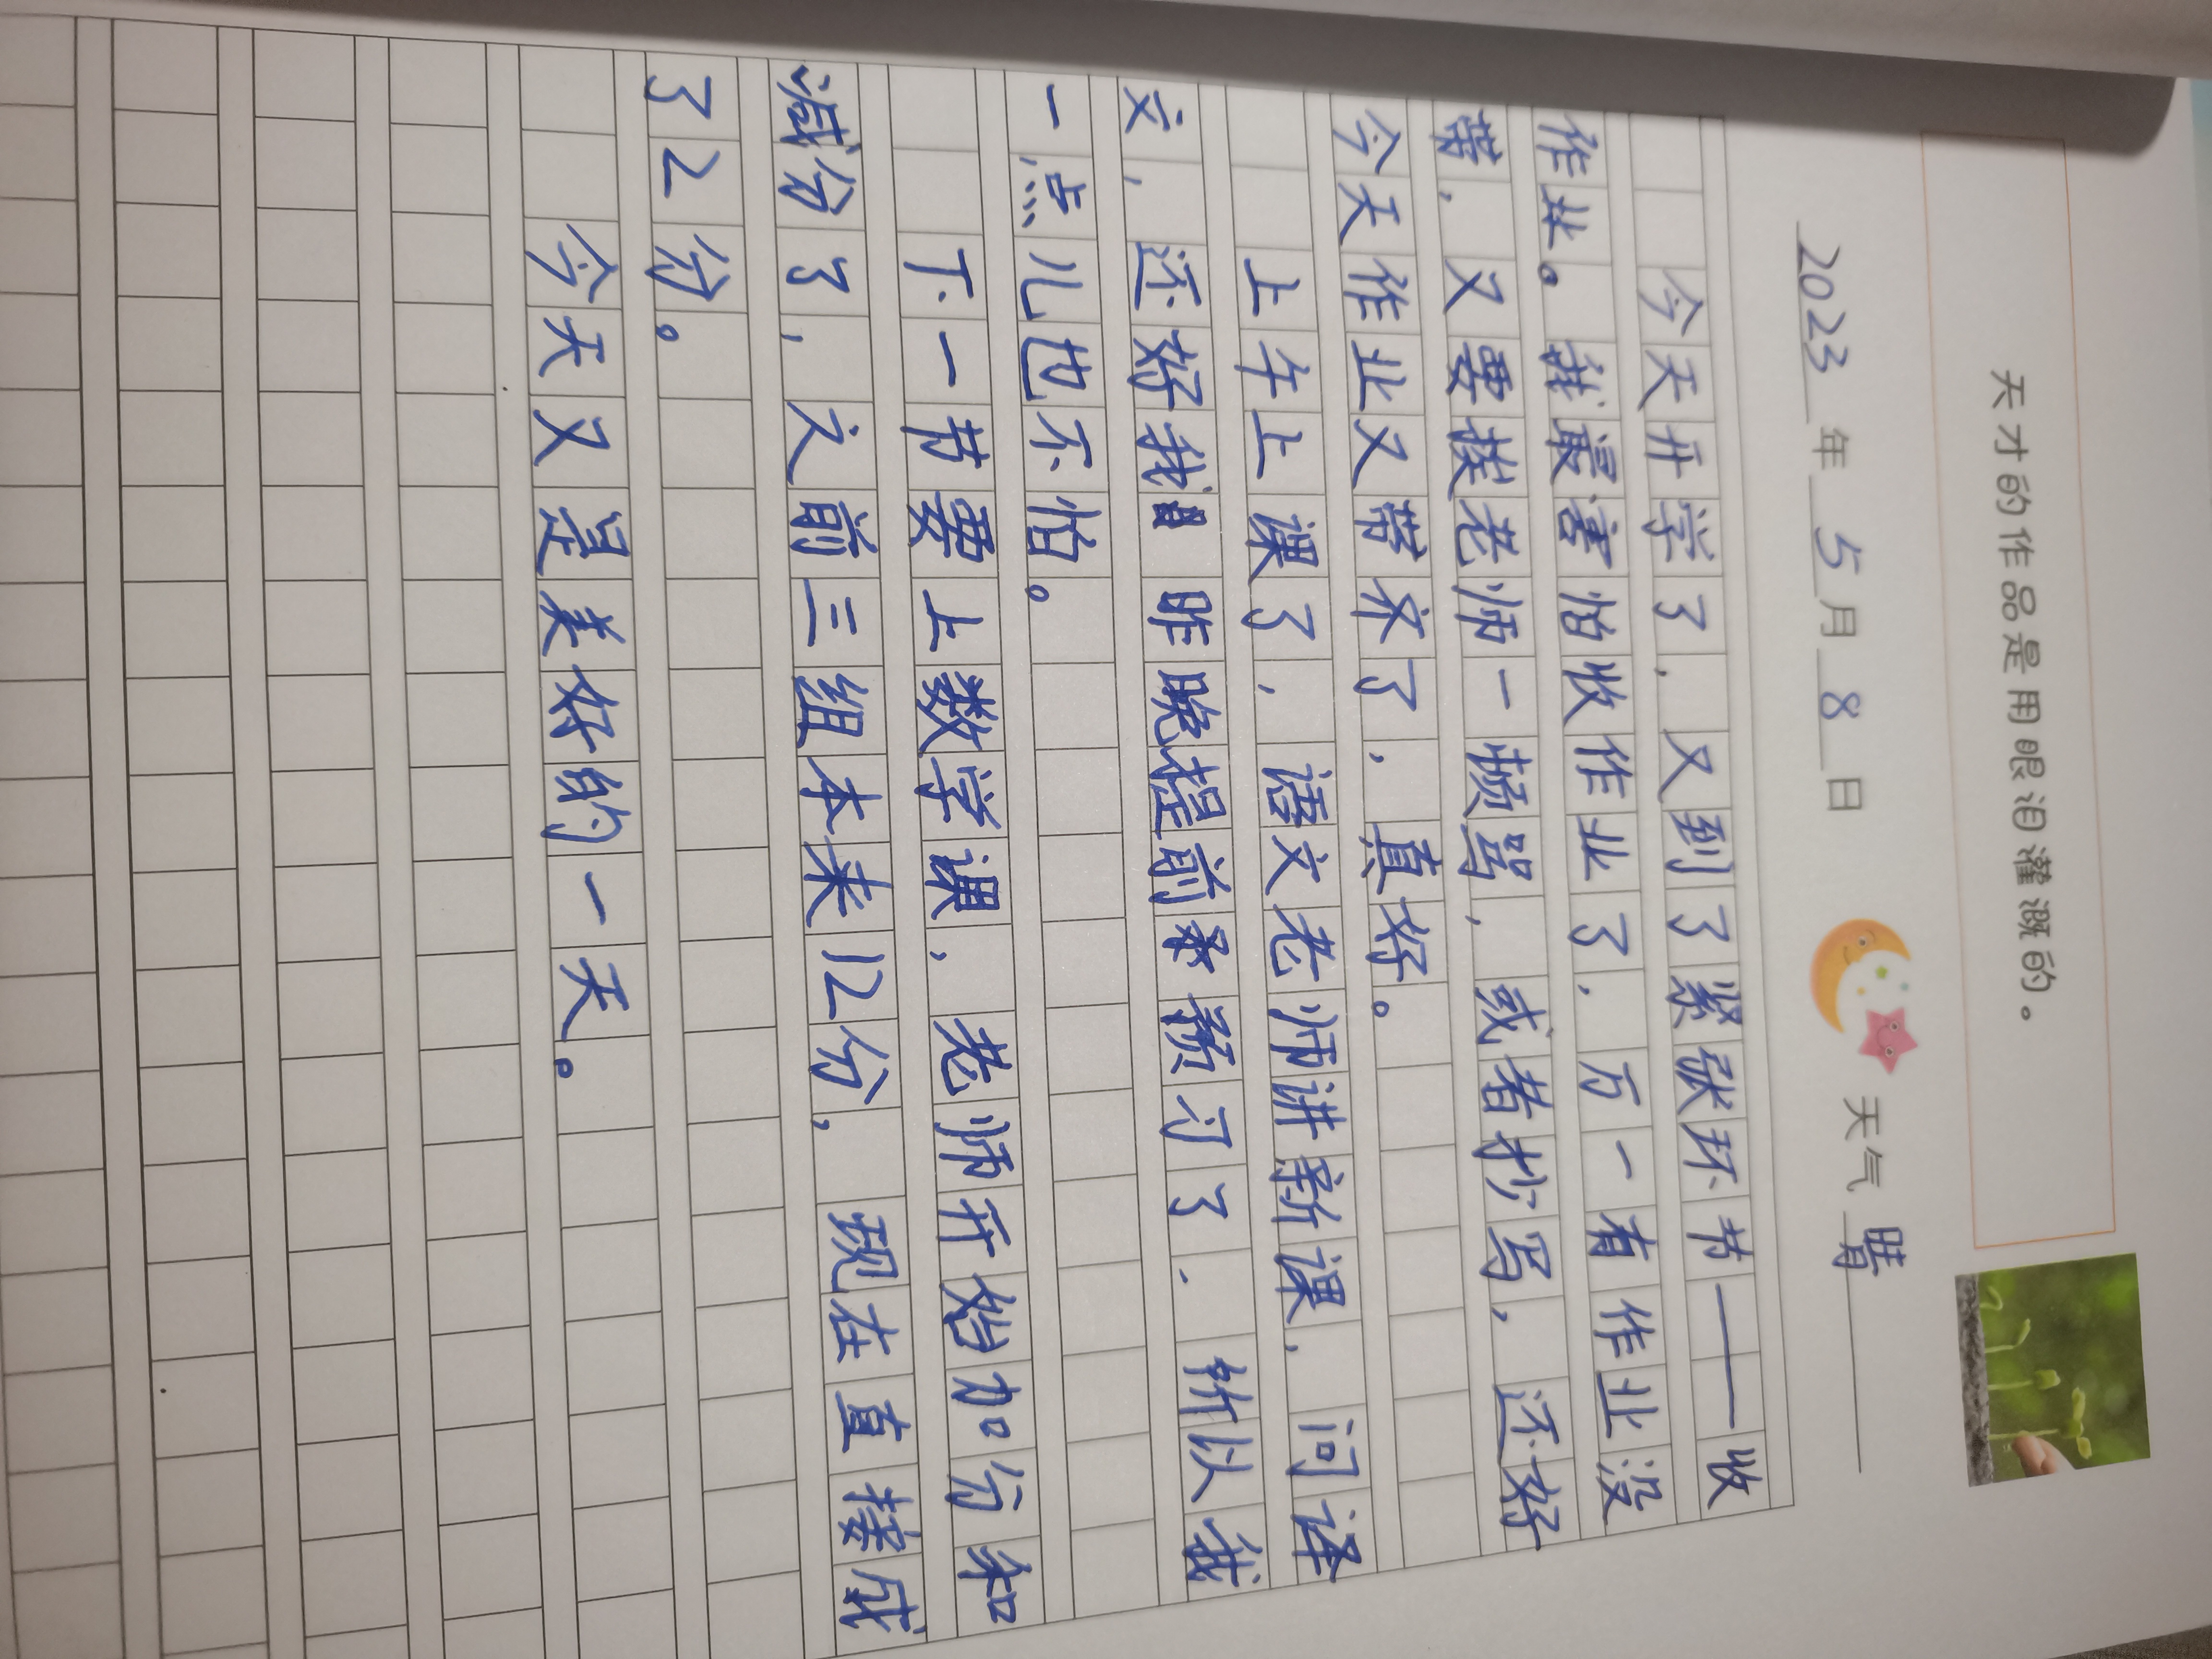 天才的作品是用眼泪灌溉的。
2023年5月8日 天气晴
今天开学了，又到了紧张环节——收
作业。我最害怕收作业了，万一有作业没
带，又要挨老师一顿骂，或者抄写，还好
今天作业又带齐了，真好。
上午上课了，语文老师讲新课，问译
文，还好我昨晚提前预习了．所以我
一点儿也不怕。
下一节要上数学课，老师开始加分和
减分了，之前三组本来12分，现在直接成
了2分。
今天又是美好的一天。